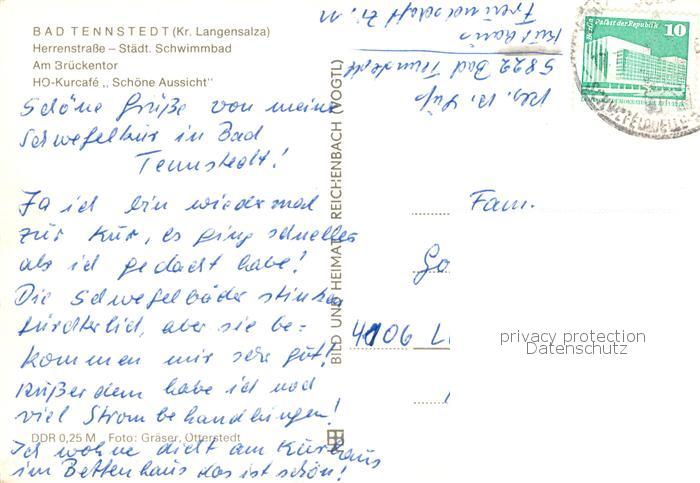 BAD TENNSTEDT (Kr. Langensalza)
Herrenstraße – Städt. Schwimmbad
Am Brückentor
HO-Kurcafé „Schöne Aussicht"
Schöne Grüße von meine
Schwefelkur in Bad
Tennstedt!
Ja ich bin wiedermal
zur Kur, es ging schneller
als ich gedacht habe!
Die Schwefelbäder stinken
fürchterlich, aber sie be-
kommen mir sehr gut!
Außerdem habe ich noch
viel Strombehandlungen!
Ich wohne dicht am Kurhaus
im Bettenhaus das ist schön!
DDR 0,25 M Foto: Gräser, Otterstedt
BILD UND HEIMAT REICHENBACH (VOGTL)
5822 Bad Tennstedt
Kurhaus
Freundschaft Zi. 11
Palast der Republik
10
Fam.
Go
4106 L
privacy protection
Datenschutz